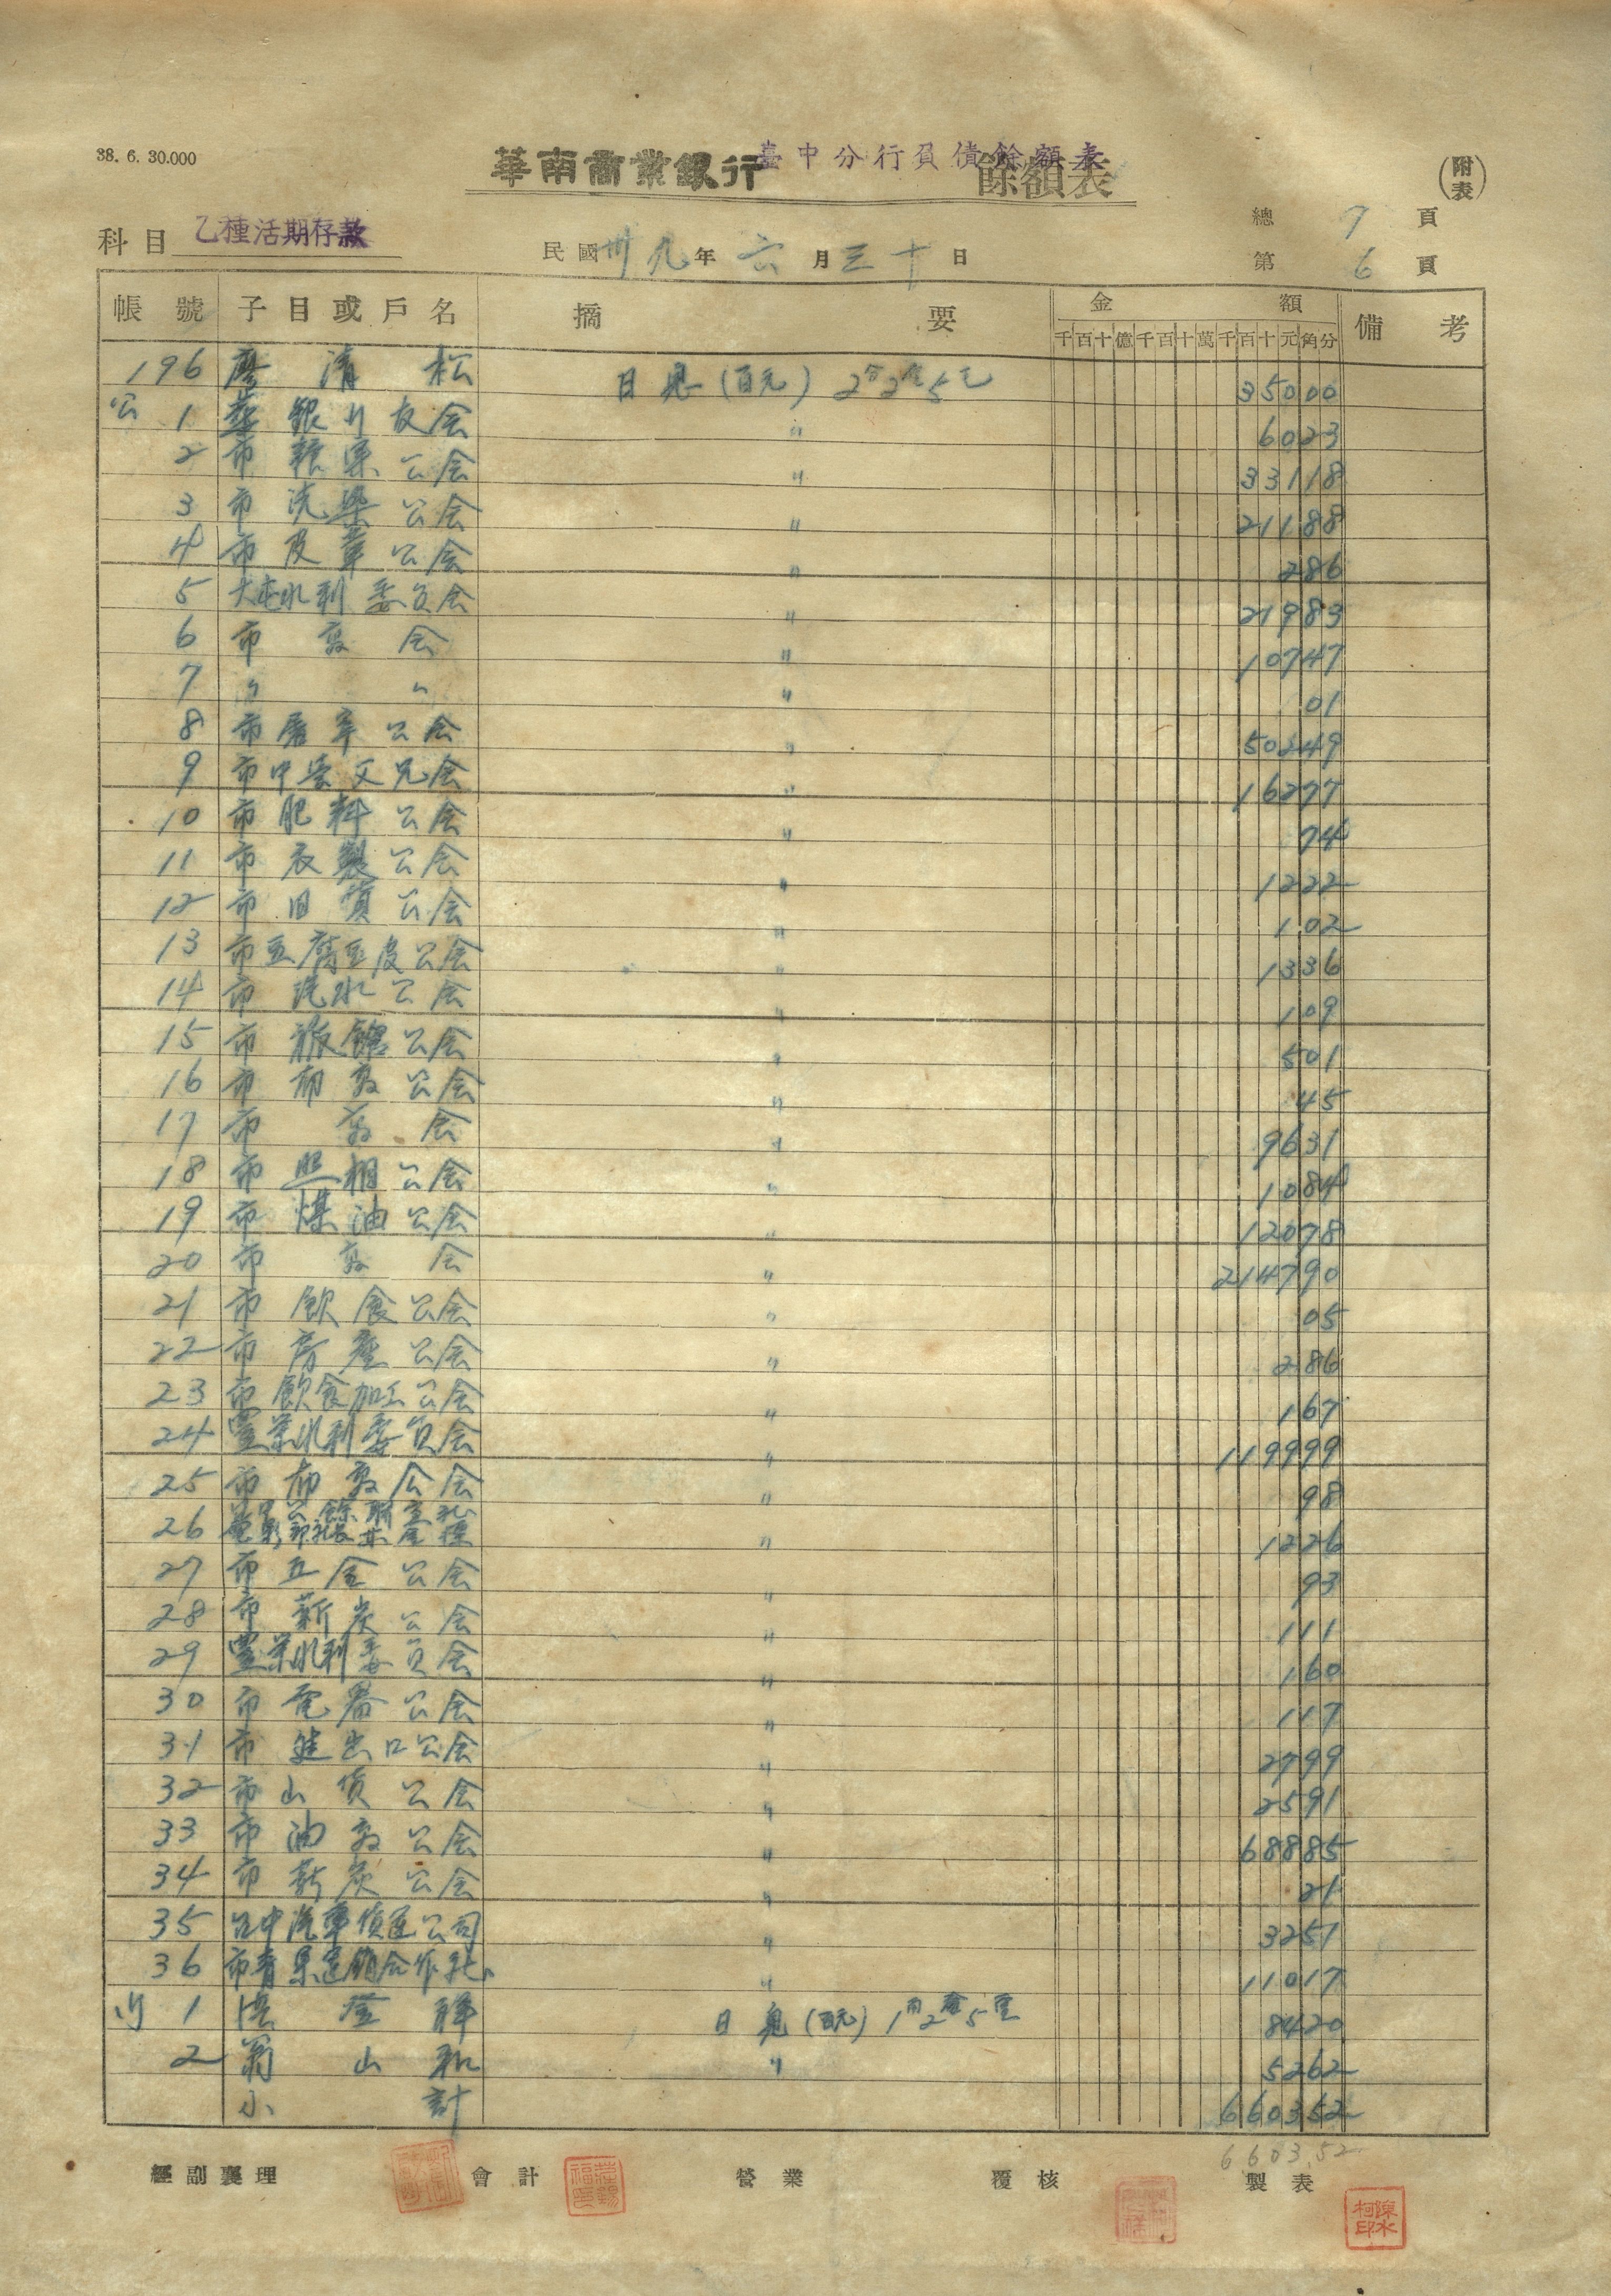 38. 6. 30.000
華南商業銀行臺中分行負債餘額表
餘額表
(附表)
總 7 頁
科目 乙種活期存款
民國 卅九 年 六 月 三十 日
第 6 頁
帳號 子目或戶名 摘要 金額 備考
千百十億千百十萬千百十元角分
196 廖清松 日息(百元) 35000
公 1 〃 6023
2 市 公会 〃 33118
3 市洗染公会 〃 21188
4 市皮革公会 〃 286
5 大屯水利委員会 〃 21983
6 市商会 〃 10747
7 〃 〃 〃 01
8 市屠宰公会 〃 50249
9 市中 父兄会 〃 16277
10 市肥料公会 〃 74
11 市衣製公会 〃 1222
12 市旧貨公会 〃 102
13 市豆腐豆皮公会 〃 1336
14 市汽水公会 〃 109
15 市飯館公会 〃 501
16 市布商公会 〃 45
17 市商会 〃 9631
18 市照相公会 〃 1084
19 市煤油公会 〃 12078
20 市商会 〃 214790
21 市飲食公会 〃 05
22 市房產公会 〃 286
23 市飲食加工公会 〃 167
24 豐榮水利委員会 〃 119999
25 市布商公会 〃 98
26 〃 1226
27 市五金公会 〃 93
28 市薪炭公会 〃 111
29 豐榮水利委員会 〃 160
30 市電器公会 〃 117
31 市進出口公会 〃 2799
32 市山貨公会 〃 2591
33 市油商公会 〃 68885
34 市薪炭公会 〃 21
35 台中汽車貨運公司 〃 3251
36 市青果運銷合作社 〃 11017
1 日息(百元) 8420
2 翁山 〃 5262
小計 660352
6603.52
經副襄理 會計 營業 覆核 製表
陳水柯印